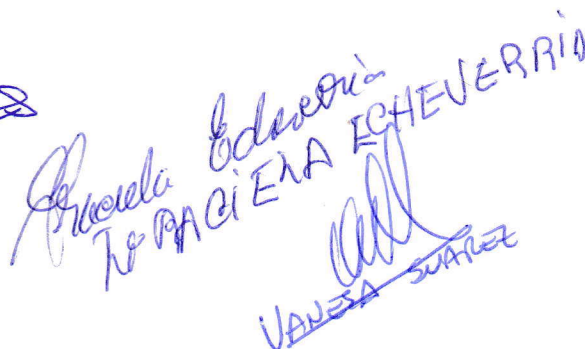 Graciela Echeverría
GRACIELA ECHEVERRIA
VANESA SUAREZ